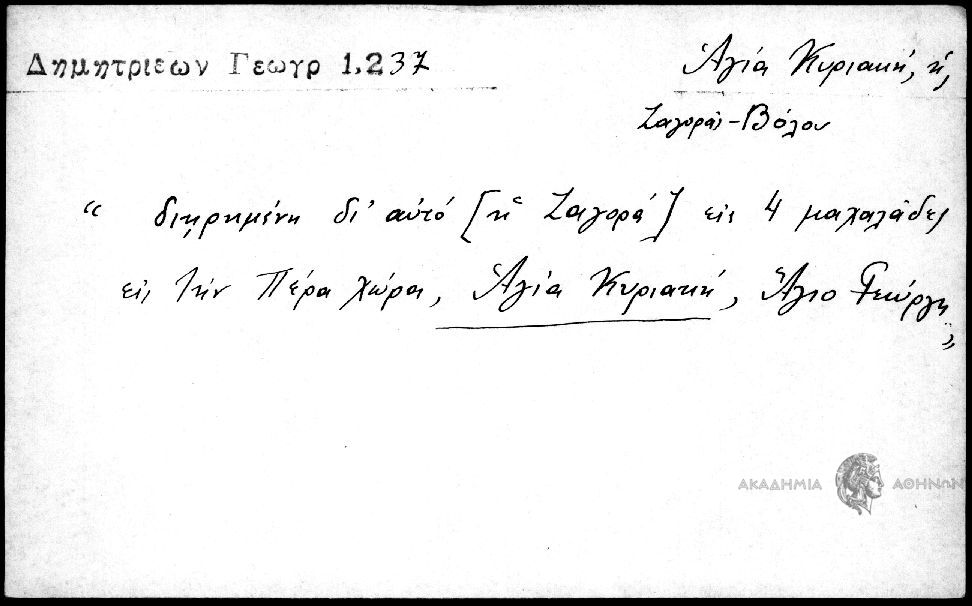 Δημητριεων Γεωγρ 1,237
Ἁγία Κυριακή, ἡ,
Ζαγορᾶς-Βόλου
“ διῃρημένη δι' αὐτό [ἡ Ζαγορά] εἰς 4 μαχαλάδες
εἰς τὴν Πέρα χώραν, Ἁγία Κυριακή, Ἅγιο Γεώργη
”
ΑΚΑΔΗΜΙΑ ΑΘΗΝΩΝ